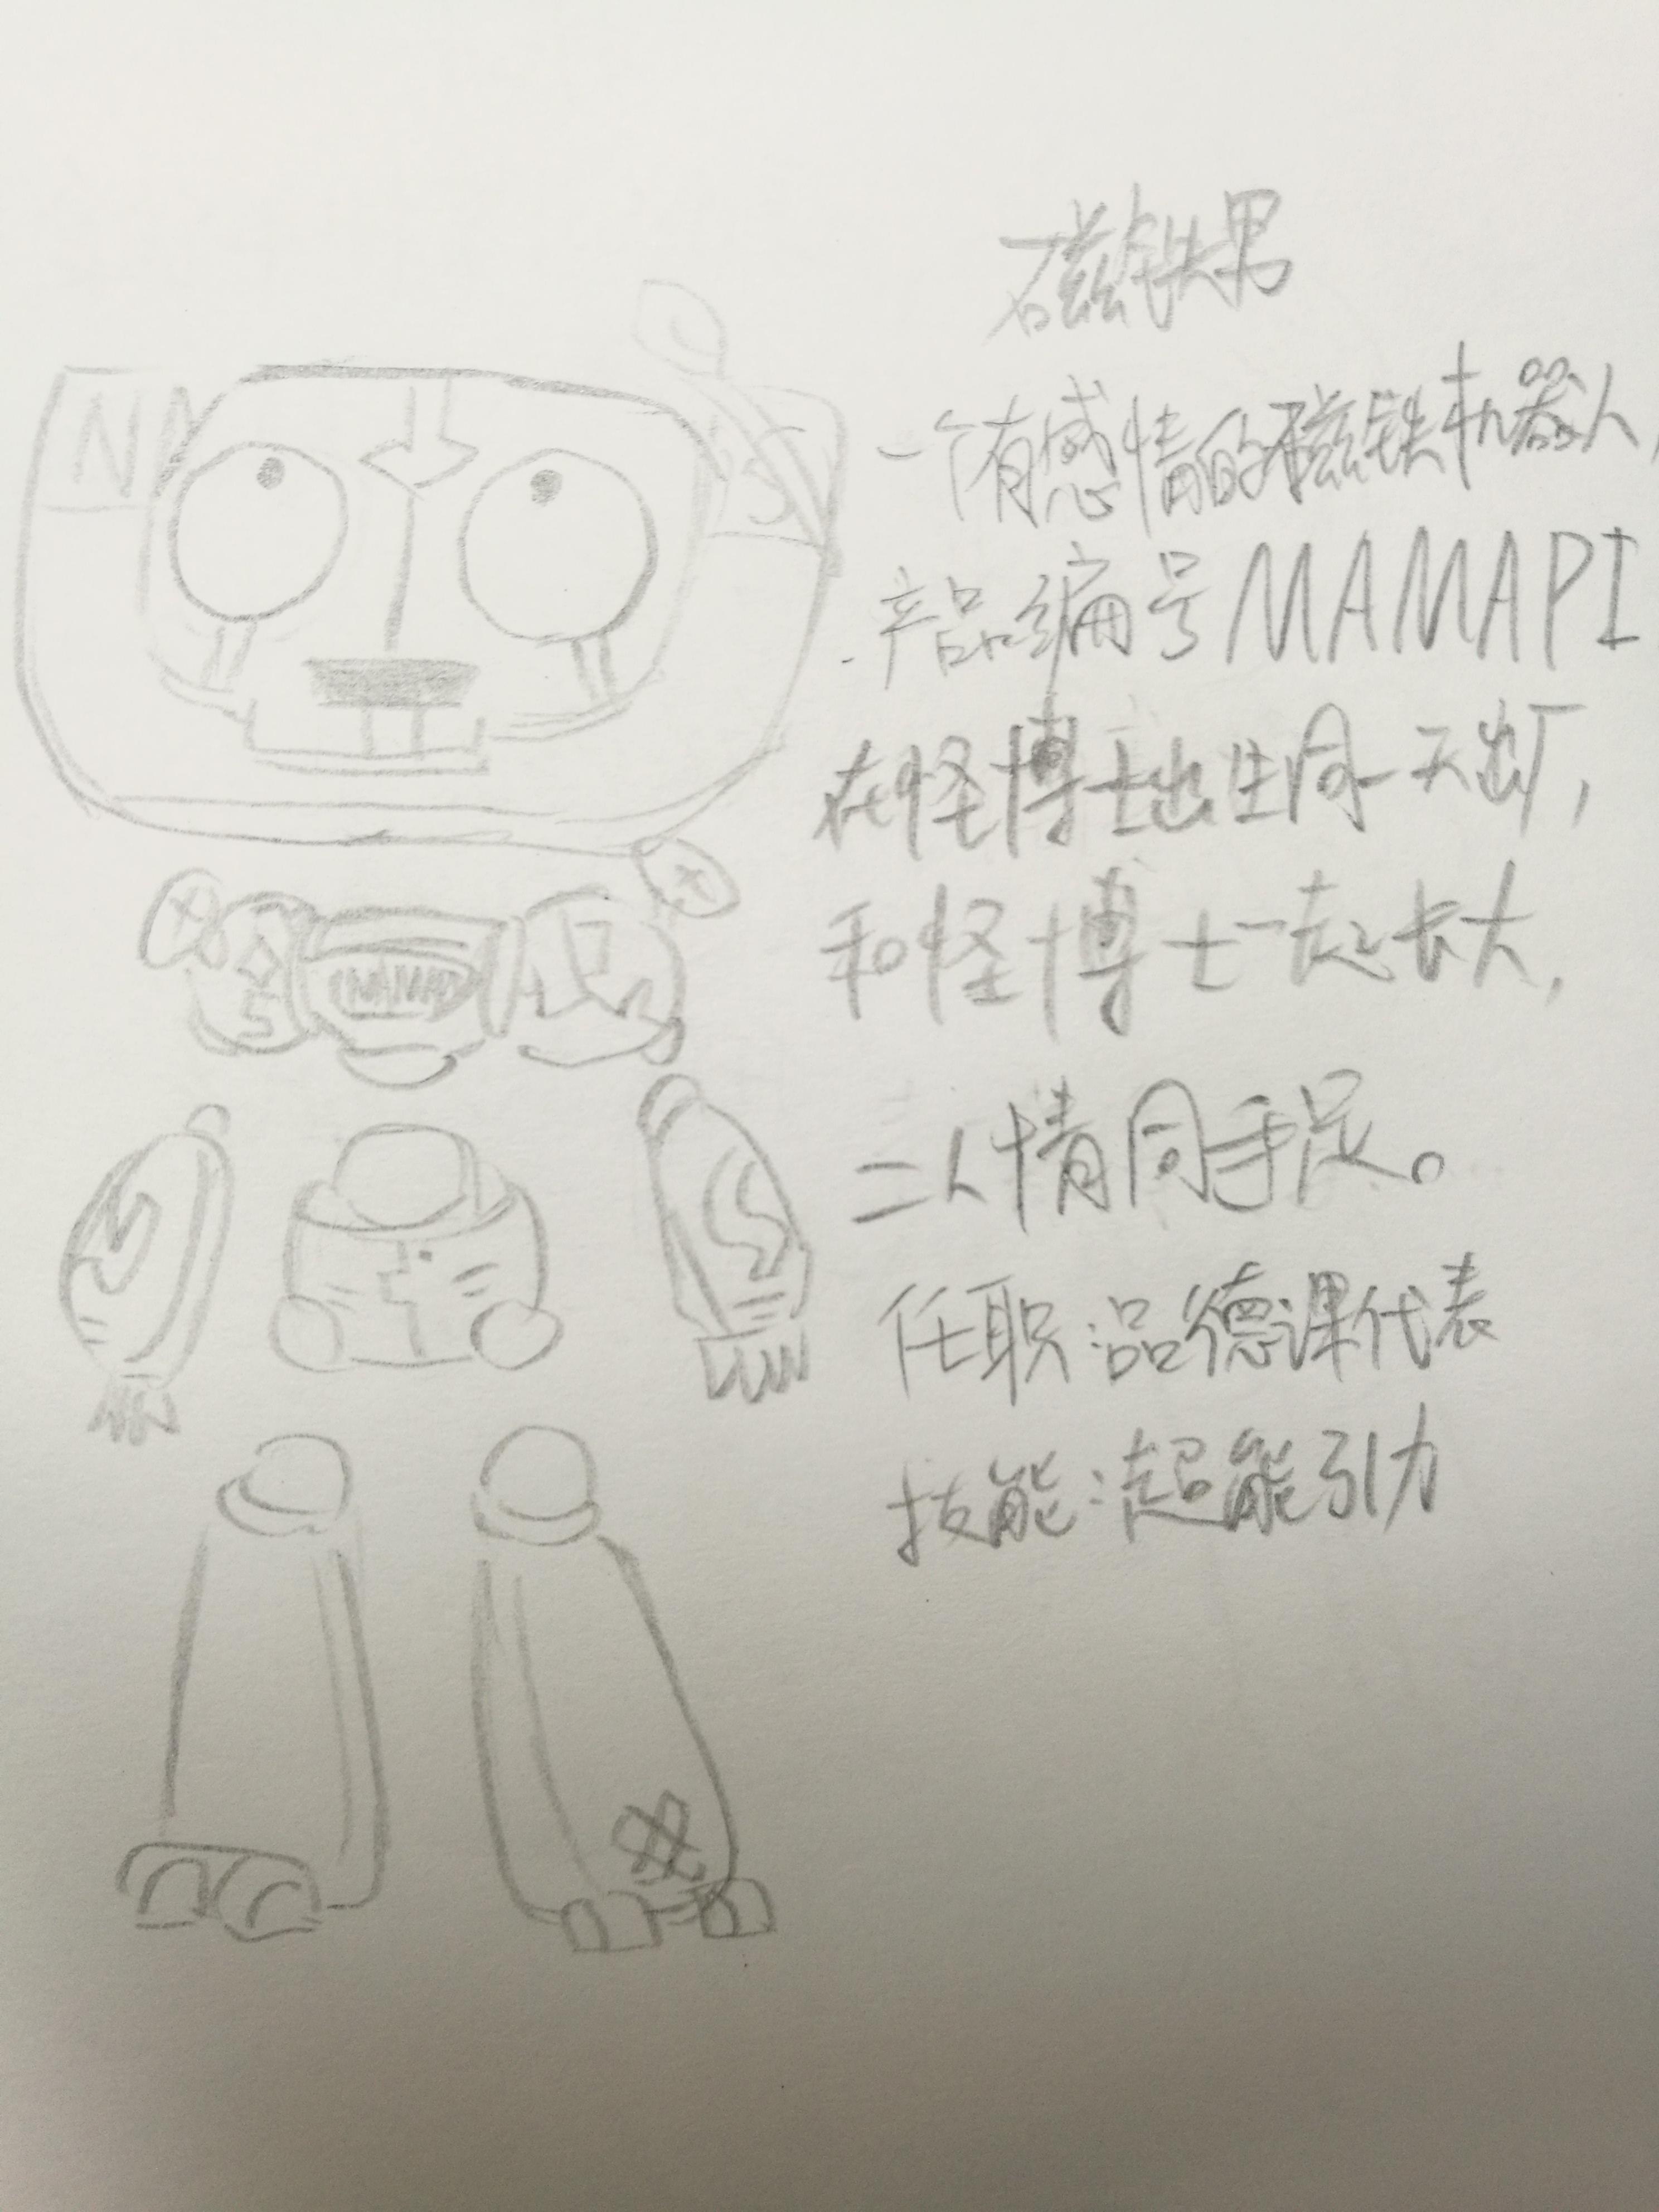 磁铁男
一个有感情的磁铁机器人,
产品编号MAMAPI
在怪博士出生同一天出厂,
和怪博士一起长大,
二人情同手足。
任职:品德课代表
技能:超能引力
N
S